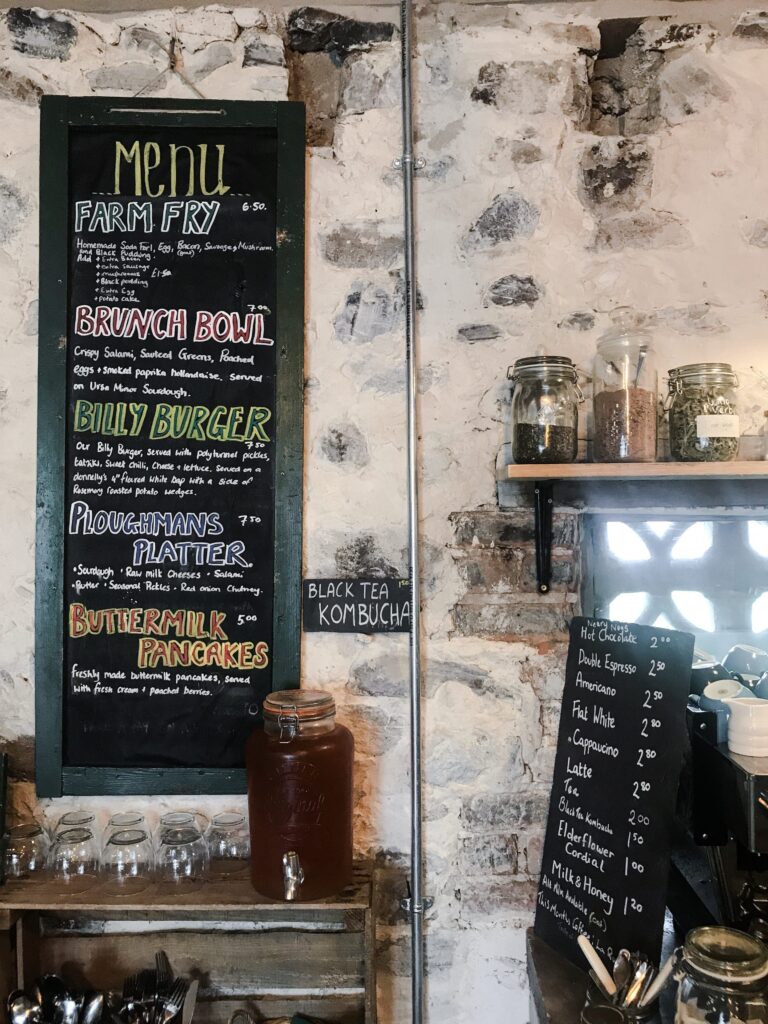 Menu
FARM FRY 6.50.
Homemade Soda Farl, Egg, Bacon, Sausage, Mushroom,
and Black Pudding.
Add + Extra Bacon
+ extra sausage
+ mushrooms £1.50
+ Black pudding
+ Extra Egg
+ potato cake.
7.00
BRUNCH BOWL
Crispy Salami, Sauteed Greens, Poached
eggs + smoked paprika hollandaise. served
on Ursa Minor Sourdough.
BILLY BURGER
7.50
Our Billy Burger, served with polytunnel pickles,
Sweet Chilli, Cheese + lettuce. Served on a
donnelly's 4" floured white Bap with a side of
Rosemary roasted potato wedges.
PLOUGHMANS 7.50
PLATTER
• Sourdough • Raw milk Cheeses • Salami
• Butter • Seasonal Pickles • Red onion Chutney.
BUTTERMILK 5.00
PANCAKES
freshly made buttermilk pancakes, served
with fresh cream + poached berries.
BLACK TEA 1.50
KOMBUCHA
Neary Nogs
Hot Chocolate 2.00
Double Espresso 2.50
Americano 2.50
Flat White 2.80
Cappucino 2.80
Latte 2.80
Tea 2.00
Black Tea Kombucha 1.50
Elderflower
Cordial 1.00
Milk & Honey 1.20
This Month's